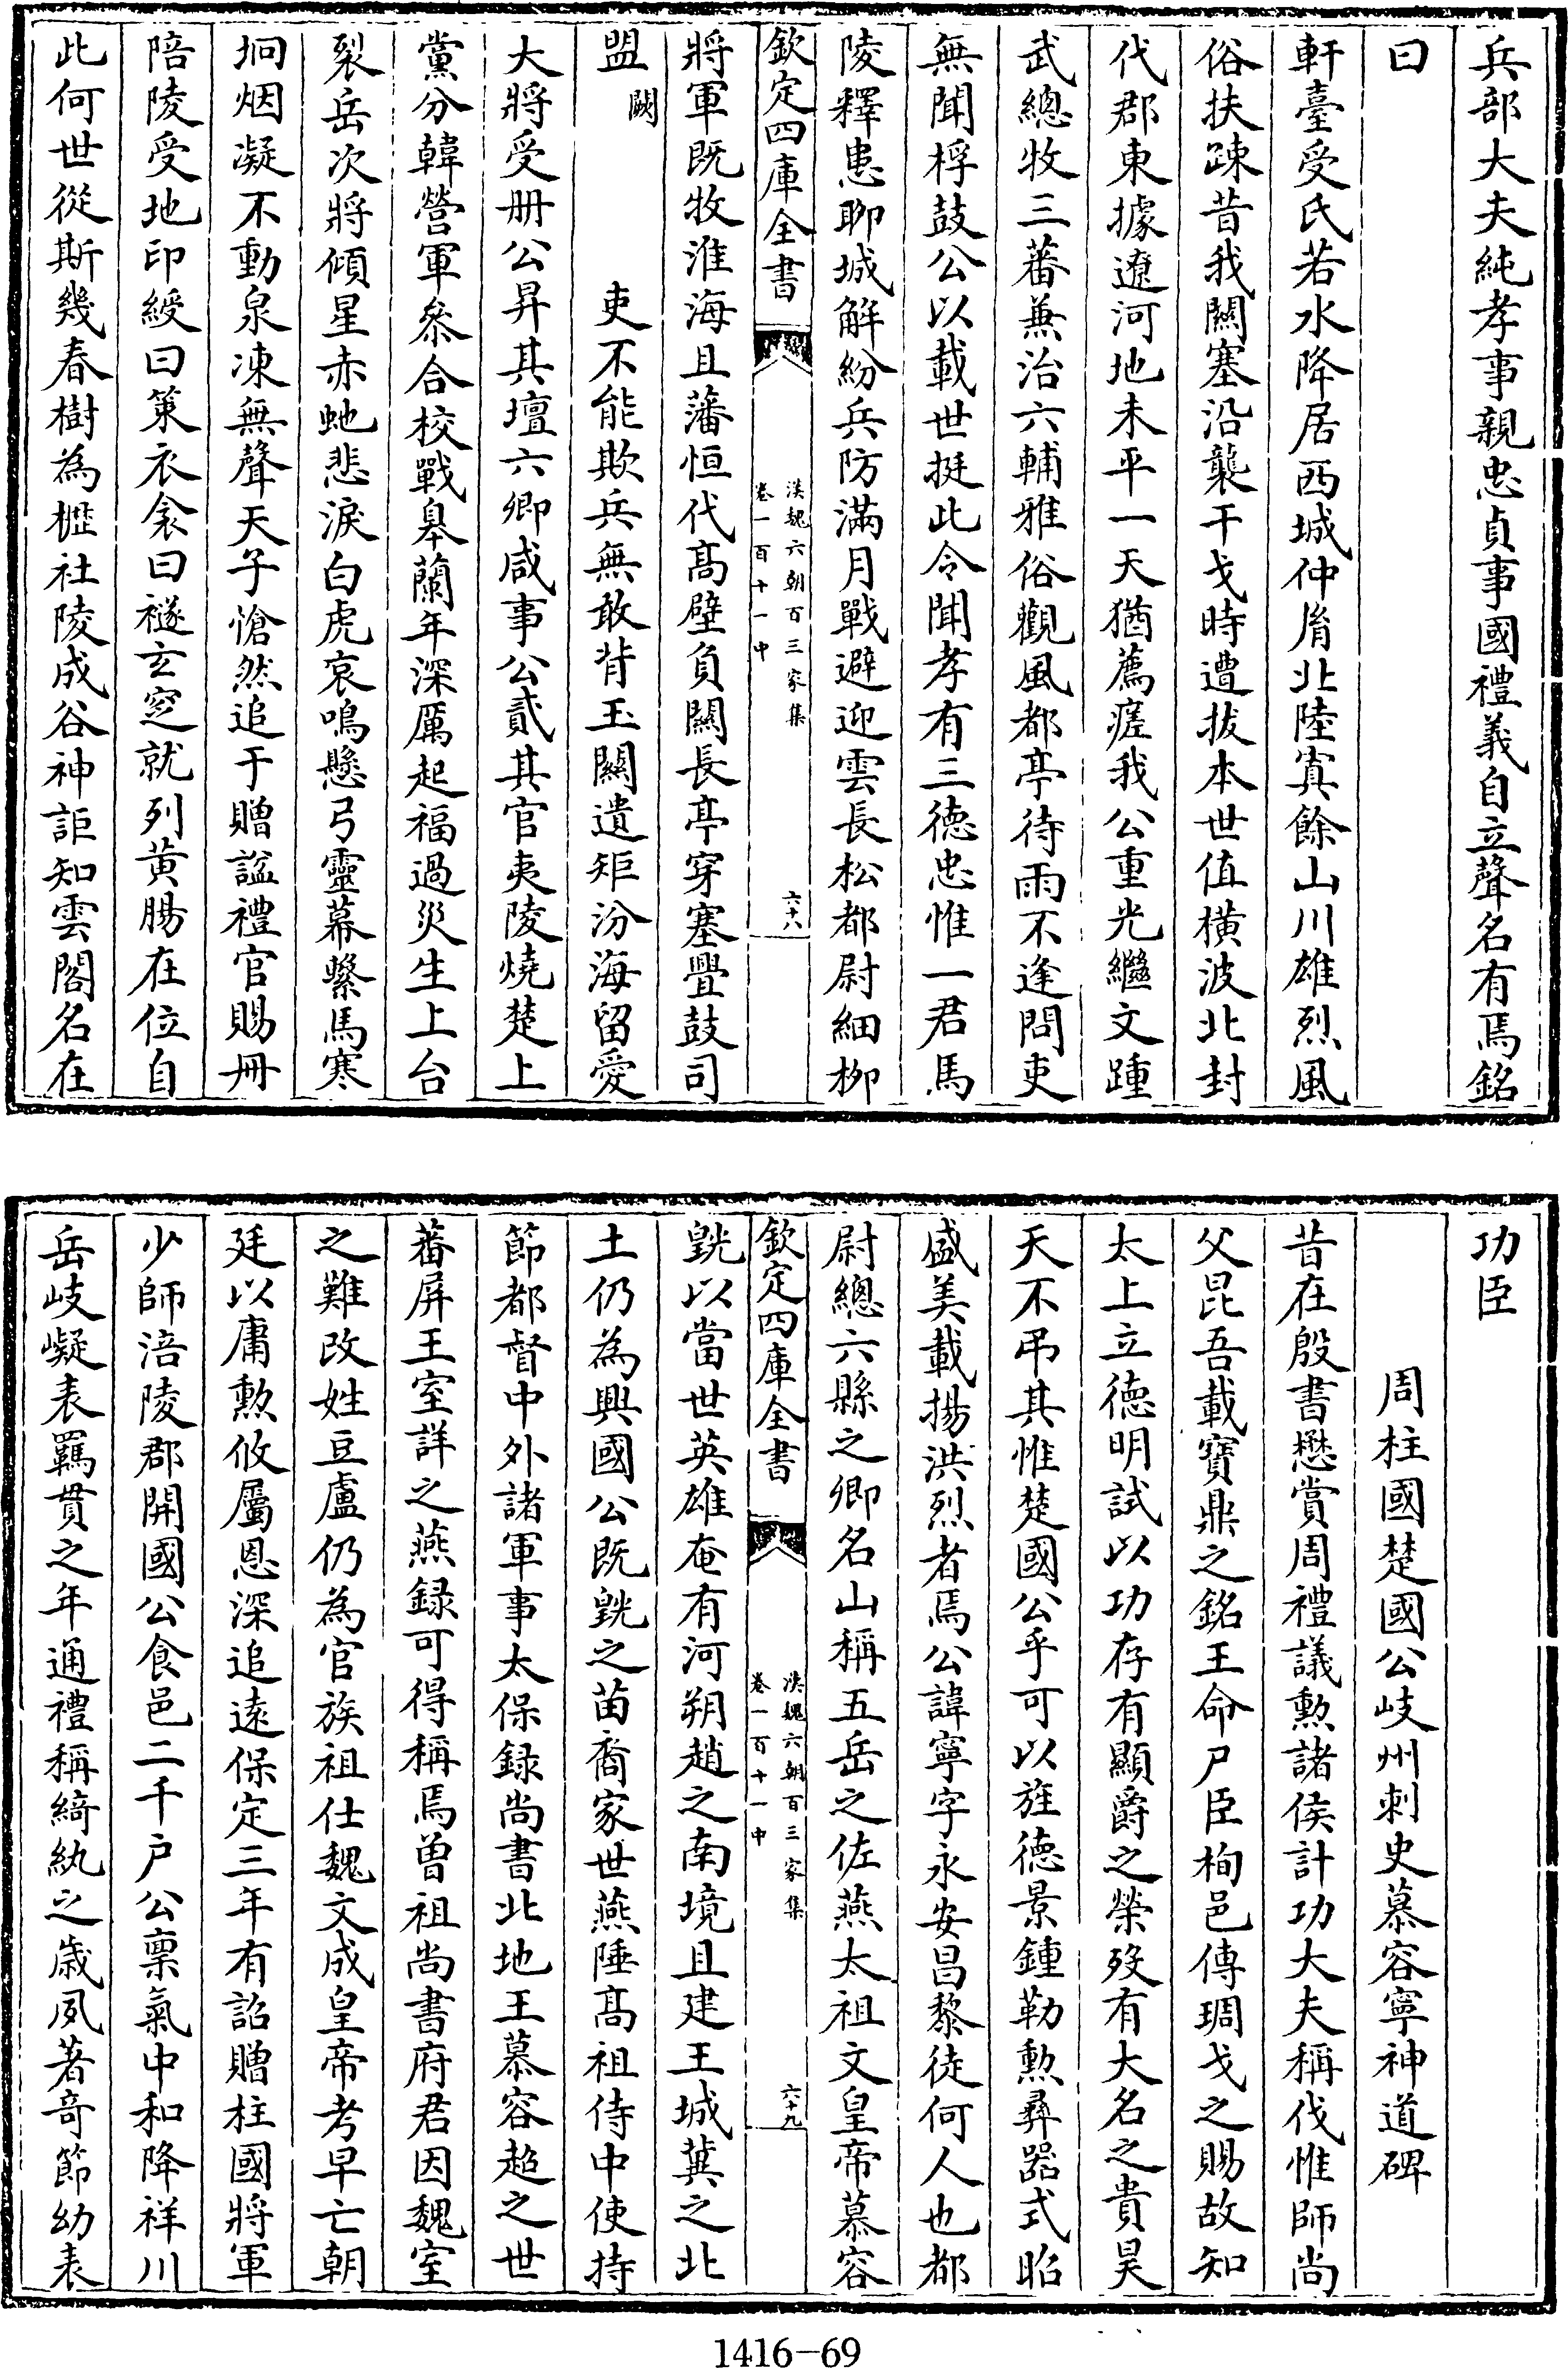 兵部大夫純孝事親忠貞事國禮義自立聲名有焉銘
曰
軒臺受氏若水降居西城仲胤北陸寘餘山川雄烈風
俗扶疎昔我關塞沿襲干戈時遭拔本世值橫波北封
代郡東據遼河地未平一天猶薦瘥我公重光繼文踵
武總牧三蕃兼治六輔雅俗觀風都亭待雨不逢問吏
無聞桴鼓公以載世挺此令聞孝有三德忠惟一君馬
陵釋患聊城解紛兵防滿月戰避迎雲長松都尉細柳
欽定四庫全書
漢魏六朝百三家集
卷一百十一中
六十八
將軍既牧淮海且藩恒代高壁負關長亭穿塞疊鼓司
盟闕吏不能欺兵無敢背玉關遺矩汾海留愛
大將受冊公昇其壇六卿咸事公貳其官夷陵燒楚上
黨分韓營軍叅合校戰臯蘭年深厲起福過災生上台
裂岳次將傾星赤虵悲淚白虎哀鳴懸弓靈幕繫馬寒
坰烟凝不動泉凍無聲天子愴然追于贈謚禮官賜冊
陪陵受地印綬曰策衣衾曰襚玄窆就列黃腸在位自
此何世從斯幾春樹為櫪社陵成谷神詎知雲閣名在
功臣
周柱國楚國公岐州刺史慕容寧神道碑
昔在殷書懋賞周禮議勲諸侯計功大夫稱伐惟師尚
父昆吾載寶鼎之銘王命尸臣栒邑傳琱戈之賜故知
太上立德明試以功存有顯爵之榮歿有大名之貴昊
天不弔其惟楚國公乎可以旌德景鍾勒勲彞器式昭
盛美載揚洪烈者焉公諱寧字永安昌黎徒何人也都
尉總六縣之卿名山稱五岳之佐燕太祖文皇帝慕容
欽定四庫全書
漢魏六朝百三家集
卷一百十一中
六十九
皝以當世英雄奄有河朔趙之南境且建王城冀之北
土仍為興國公既皝之苗裔家世燕陲高祖侍中使持
節都督中外諸軍事太保録尚書北地王慕容超之世
蕃屏王室詳之燕録可得稱焉曾祖尚書府君因魏室
之難改姓豆盧仍為官族祖仕魏文成皇帝考早亡朝
廷以庸勲攸屬恩深追遠保定三年有詔贈柱國將軍
少師涪陵郡開國公食邑二千户公稟氣中和降祥川
岳岐嶷表羈貫之年通禮稱綺紈之歲夙著奇節幼表
1416-69